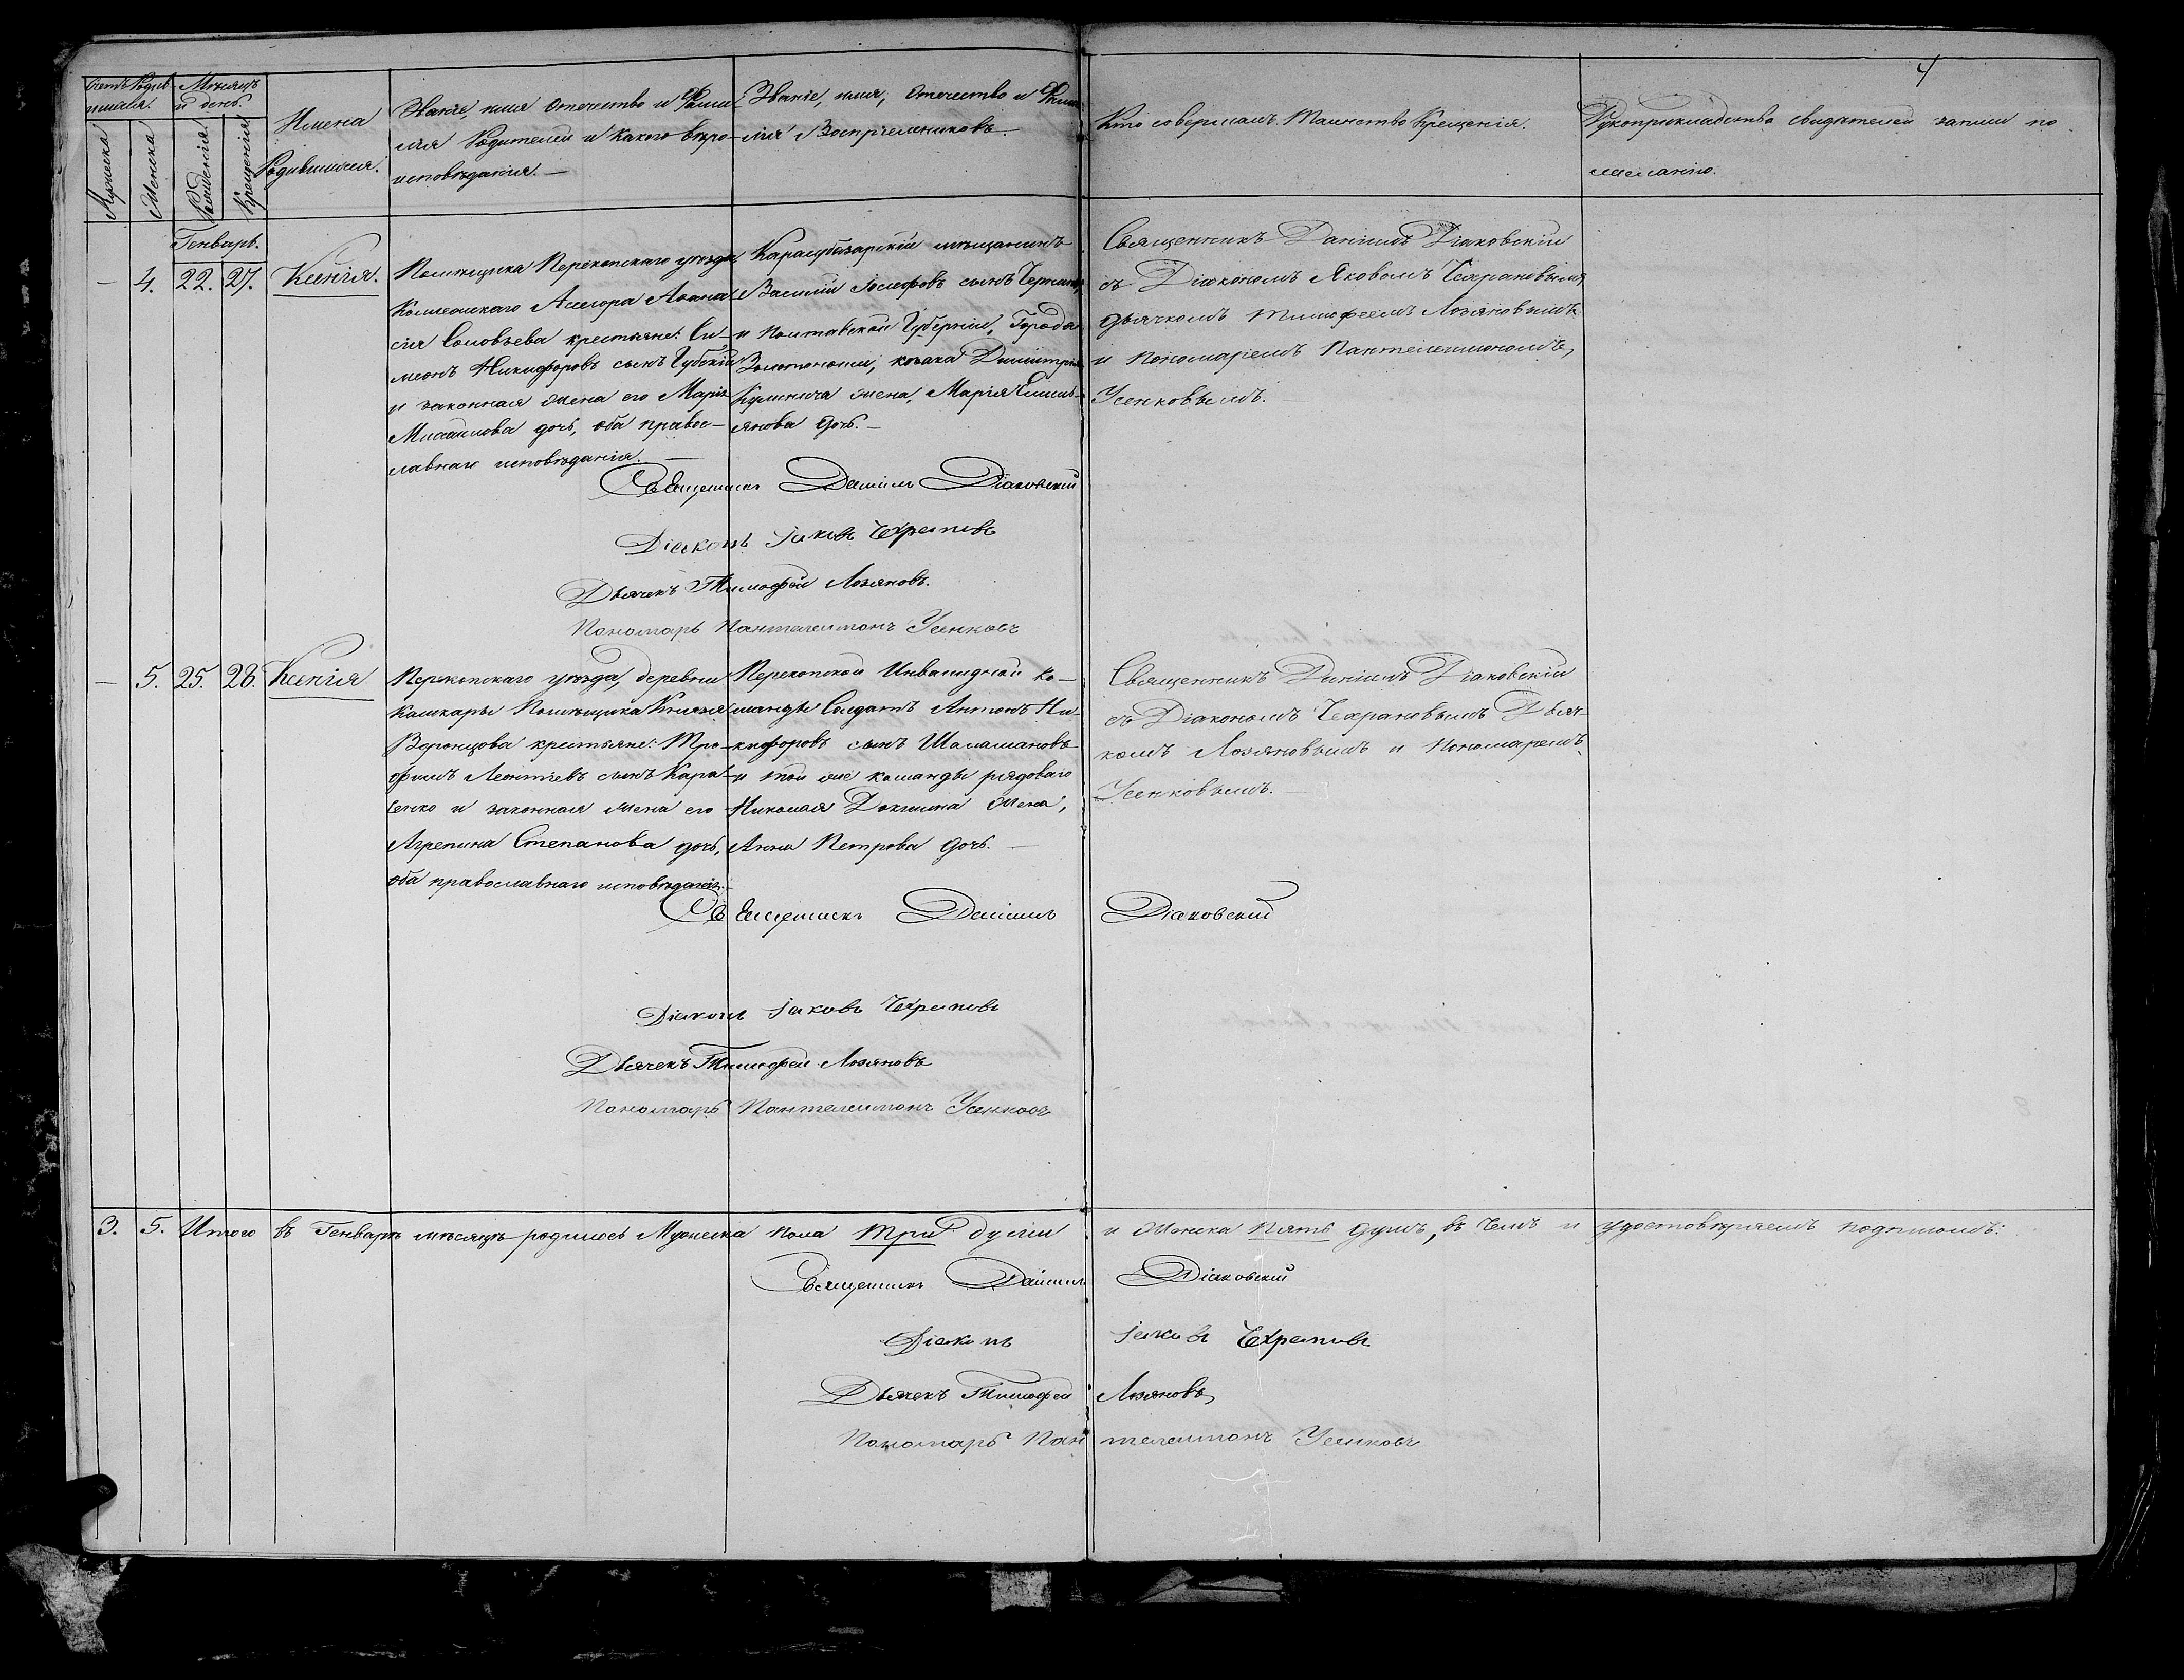 4
Счетъ Родив-
шихся.
Мѣсяцъ
и день.
Мужеска
Женска
Рожденія
Крещенія
Имена
Родившихся.
Званіе, имя Отечество и Фами-
лія Родителей и Какого вѣро-
исповѣданія.
Званіе, имя, Отечество и Фами-
лія Воспріемниковъ.
Кто совершалъ Таинство Крещенія.
Рукоприкладство свидѣтелей записи по
желанію.
Генварь.
— 4. 22. 27. Ксенія.
Помѣщика Перекопскаго уѣзда
Коллежскаго Асесора Аѳана-
сія Соловьева крестьяне: Си-
меонъ Никифоровъ сынъ Губскій
и законная жена его Марія
Михаилова дочь, оба правос-
лавнаго исповѣданія.
Карасубазарскій мѣщанинъ
Василій Іосифовъ сынъ
и Полтавской Губерніи, Города
Золотоноши, козака Димитрія
жена, Марія Емиль-
янова дочь.
Священникъ Даніилъ Діаковскій
съ Діакономъ Яковомъ Чехрановымъ,
дьячкомъ Тимофеемъ Лозяновымъ
и Пономаремъ Пантелеимономъ
Усенковымъ.
Священникъ Даніилъ Діаковскій
Діаконъ Іаковъ Чехрановъ
Дьячекъ Тимофей Лозяновъ.
Пономарь Пантелеимонъ Усенковъ
— 5. 25. 28. Ксенія
Перекопскаго уѣзда, деревни
Кашкары Помѣщика Князя
Воронцова крестьяне: Тро-
фимъ Леонтіевъ сынъ Кара-
сенко и законная жена его
Агрепина Степанова дочь,
оба православнаго исповѣданія.
Перекопской Инвалидной ко-
манды Солдатъ Антонъ Ни-
кифоровъ сынъ Шаламановъ
и той же команды рядоваго
Николая Докшина жена,
Анна Петрова дочь.
Священникъ Даніилъ Діаковскій
съ Діакономъ Чехрановымъ Дьяч-
комъ Лозяновымъ и Пономаремъ
Усенковымъ.
Священникъ Даніилъ Діаковскій
Діаконъ Іаковъ Чехрановъ
Дьячекъ Тимофей Лозяновъ
Пономарь Пантелеимонъ Усенковъ
3. 5. Итого въ Генварѣ мѣсяцѣ родилось Мужеска пола три души и Женска пять душъ, въ чемъ и удостовѣряемъ подписомъ:
Священникъ Даніилъ Діаковскій
Діаконъ Іаковъ Чехрановъ
Дьячекъ Тимофей Лозяновъ
Пономарь Пантелеимонъ Усенковъ